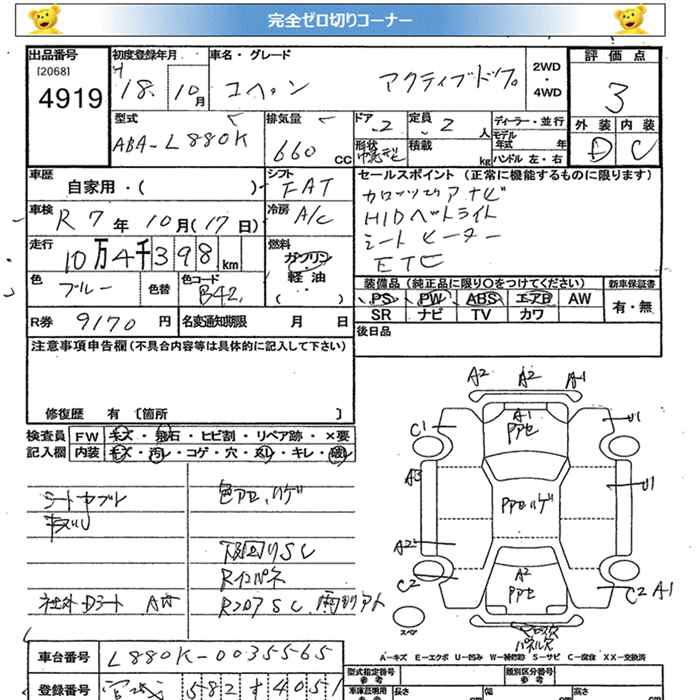 完全ゼロ切りコーナー
出品番号 初度登録年月 車名・グレード 2WD・4WD 評価点
[2068]
4919 H 18. 10月 コペン アクティブトップ 3
型式 排気量 ドア 定員 ディーラー・並行 外装 内装
ABA-L880K 660 CC 2 2 人 モデル年式 年 D C
形状 積載 kg ハンドル 左・右
車歴 シフト セールスポイント (正常に機能するものに限ります)
自家用・( ) FAT カロッツェリア ナビ
車検 冷房 HIDヘッドライト
R7年10月(17日) A/C シートヒーター
走行 燃料 ETC
10万4千398km ガソリン
軽油
( )
色 色替 色コード 装備品 (純正品に限り○をつけてください) 新車保証書
ブルー B42 PS PW ABS エアB AW 有・無
SR ナビ TV カワ
R券 9170円 名変通知期限 月 日 後日品
注意事項申告欄(不具合内容等は具体的に記入して下さい)
修復歴 有 [箇所 ]
検査員 FW キズ・飛石・ヒビ割・リペア跡・×要
記入欄 内装 キズ・汚レ・コゲ・穴・スレ・キレ・
シートヤブレ 色アセ、ハゲ
キズ
下回りSC
Rインパネ
社外Dシート RフロアSC
A2 A2 A-1
C1 A1 U1
PPアセ
A3 PPアセハゲ U1
A2
C2 A2 C2 A-1
PPアセ
スペア
A-キズ E-エクボ U-凹み W-補修跡 S-サビ C-腐食 XX-交換済
車台番号 L880K-0035565 型式指定番号 類別区分番号
参考 参考
登録番号 宮城 582 す 4051 車庫証明用 長さ 幅 高さ
参考 cm cm cm